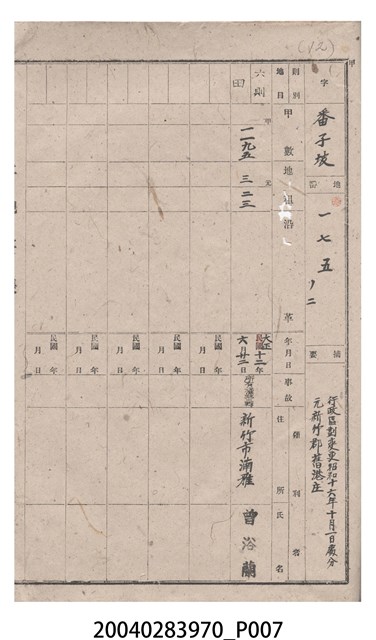 (12)
甲
字 番子坡
地番 一七五ノ二
摘要
行政區劃變更昭和十六年十月一日處分
元新竹郡舊港庄
則別 地目 甲數 地租 沿革 年月日 事故 住所 氏名
六則 田
甲 一一九五
元 三二三
大正十二年六月廿二日
新竹市湳雅 曾浴蘭
民國 年 月 日
民國 年 月 日
民國 年 月 日
民國 年 月 日
民國 年 月 日
20040283970_P007